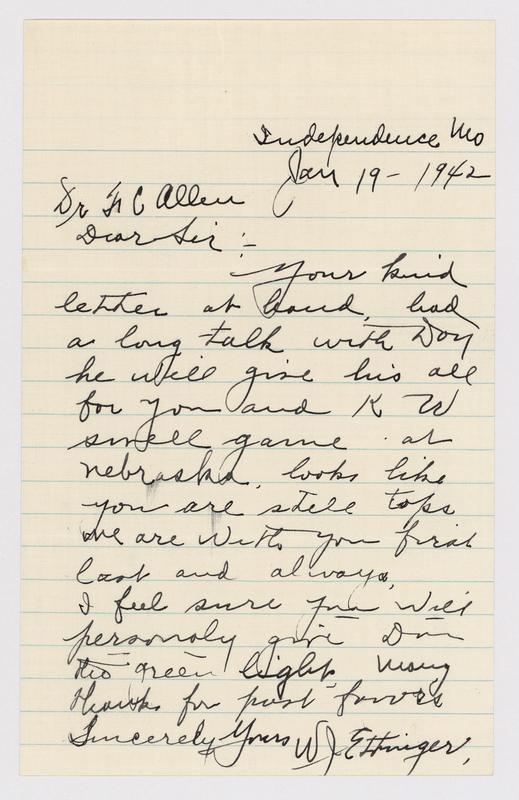 Independence Mo
Jan 19 - 1942
Dr F C Allen
Dear Sir :-
Your kind
letter at hand, had
a long talk with Don
he will give his all
for you and K U
swell game at
Nebraska, looks like
you are still tops
we are with you first
last and always,
I feel sure you will
personaly give Don
the green light, Many
thanks for past favors
Sincerely Yours W J Ettinger,